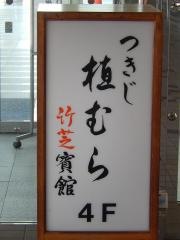 つきじ
植むら
竹芝賓館
4F